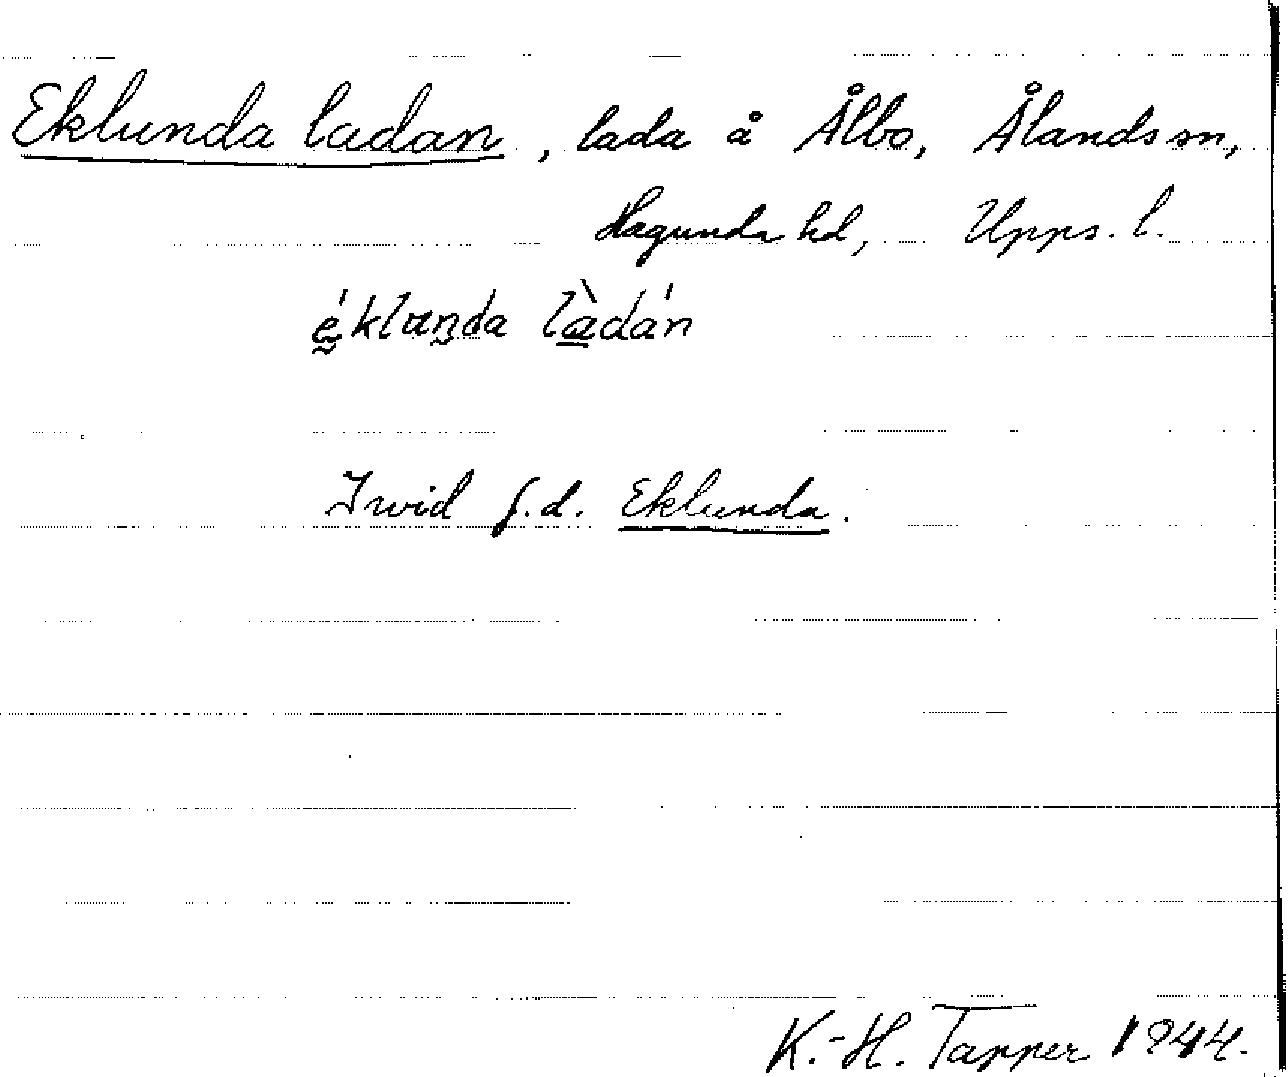 Eklunda ladan, lada å Ålbo, Ålands sn,
Hagunda hd, Upps. l.
ḛ́klanda làdán
Invid f.d. Eklunda.
K.-H. Tapper 1944.